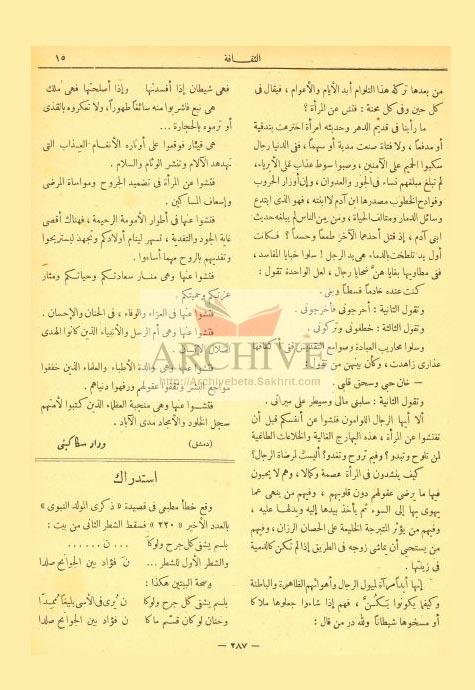 الثقافة
١٥
من بعدها تركة هذا التلوام أبد الأيام والأعوام ، فيقال فى
كل حين وفى كل محنة : فتش عن المرأة ؟
ما رأينا فى قديم الدهر وحديثه امرأة اخترعت بندقية
أو مدفعاً ، ولا فتاة صنعت مدية أو سهماً ، ففى الدنيا رجال
سكبوا الحميم على الآمنين ، وصبوا سوط عذاب على الأبرياء،
لم تبلغ مبلغهم نساء فى الجور والعدوان ، وإن أوزار الحروب
وفوادح الخطوب مصدرها ابن آدم لا ابنته ، فهو الذى ابتدع
وسائل الدمار ومتالف الحياة ، ومن من الناس لم يبلغه حديث
ابنى آدم ، إذ قتل أحدهما الآخر طمعاً وحسداً ؟ فكانت
أول يد تلطخت بالدماء هى يد الرجل ! سلوا خبايا المفاسد،
ففى مطاويها بقايا هنَّ ضحايا رجال ، لعل الواحدة تقول :
كنت عنده خادماً فسطا وبنى .
وتقول الثانية : أحرجونى فأخرجونى .
وتقول الثالثة : خطفونى وتركونى .
وسلوا محاريب العبادة وصوامع التقديس ففى أكنافها
عذارى زاهدات ، وكأن بينهن من تقول :
— خان حبى وسحق قلبى .
وتقول الثانية : سلبنى مالى وسيطر على ميراثى .
ألا أيها الرجال اللوامون فتشوا عن أنفسكم قبل أن
تفتشوا عن المرأة ، هذه البهارج الغالية والخلاعات الطاغية
لمن تلوح وتبدو ؟ وفيم تروح وتغدو؟ أليست لمرضاة الرجال؟
كيف ينشدون فى المرأة عصمة وكمالا ، وهم لا يحبون
فيها ما يرضى عقولهم دون قلوبهم ، وفيهم من ينهى عما
يهوى بها إلى السوء ثم يأخذ بيدها إليه ويدلها عليه ،
وفيهم من يؤثر المتبرجة الخليعة على الحصان الرزان ، وفيهم
من يستحى أن يماشى زوجه فى الطريق إذا لم تكن كالدمية
فى زينتها .
إنها أبداً مرآة لميول الرجال وأهوائهم الظاهرة والباطنة
وكيفما يكونوا يَكُنَّ ، فهم إذا شاءوا جعلوها ملاكا
أو مسخوها شيطاناً ولله در من قال :
فهى شيطان إذا أفسدتها وإذا أصلحتها فهى مَلك
هى نبع فاشربوا منه سائغاً طهوراً، ولا تعكروه بالقذى
أو ترموه بالحجارة ...
هى قيثار فوقعوا على أوتاره الأنغام العذاب التى
تهدهد الآلام وتنشر الوئام والسلام .
فتشوا عن المرأة فى تضميد الجروح ومواساة المرضى
وإسعاف المساكين .
فتشوا عنها فى أطوار الأمومة الرحيمة ، فهناك أقصى
غاية الجود والتفدية ، تسهر لينام أولادكم وتجهد ليستريحوا
وتفديهم بالروح مهما أساءوا .
فتشوا عنها وهى منار سعادتكم وحياتكم ومثار
عزتكم وحميتكم .
فتشوا عنها فى العزاء والوفاء ، فى الحنان والإحسان .
فتشوا عنها وهى أم الرسل والأنبياء الذين كانوا الهدى
لضلال الإنسان .
فتشوا عنها وهى والدة الأطباء والعلماء الذين خففوا
مواجع البشر وثقفوا عقولهم ورفهوا دنياهم .
فتشوا عنها وهى منجبة العظماء الذين كتبوا لأمتهم
سجل الخلود والأمجاد مدى الآباد .
(دمشق) وداد سكاكينى
استدراك
وقع خطأ مطبعى فى قصيدة « ذكرى المولد النبوى »
بالعدد الأخير « ٢٣٠ » فسقط الشطر الثانى من بيت :
بلسم يشفى كل جرح ولوكا ... ن ......
والشطر الأول للشطر ... ن فؤاد بين الجوانح صلدا
وصحة البيتين هكذا :
بلسم يشفى كل جرح ولوكا ن يُرى فى الأسى بليغاً ممـِدّا
وحنان لو كان قسّم ماكا ن فؤاد بين الجوانح صلدا
— ٢٨٧ —
ARCHIVE
http://Archivebeta.Sakhrit.com